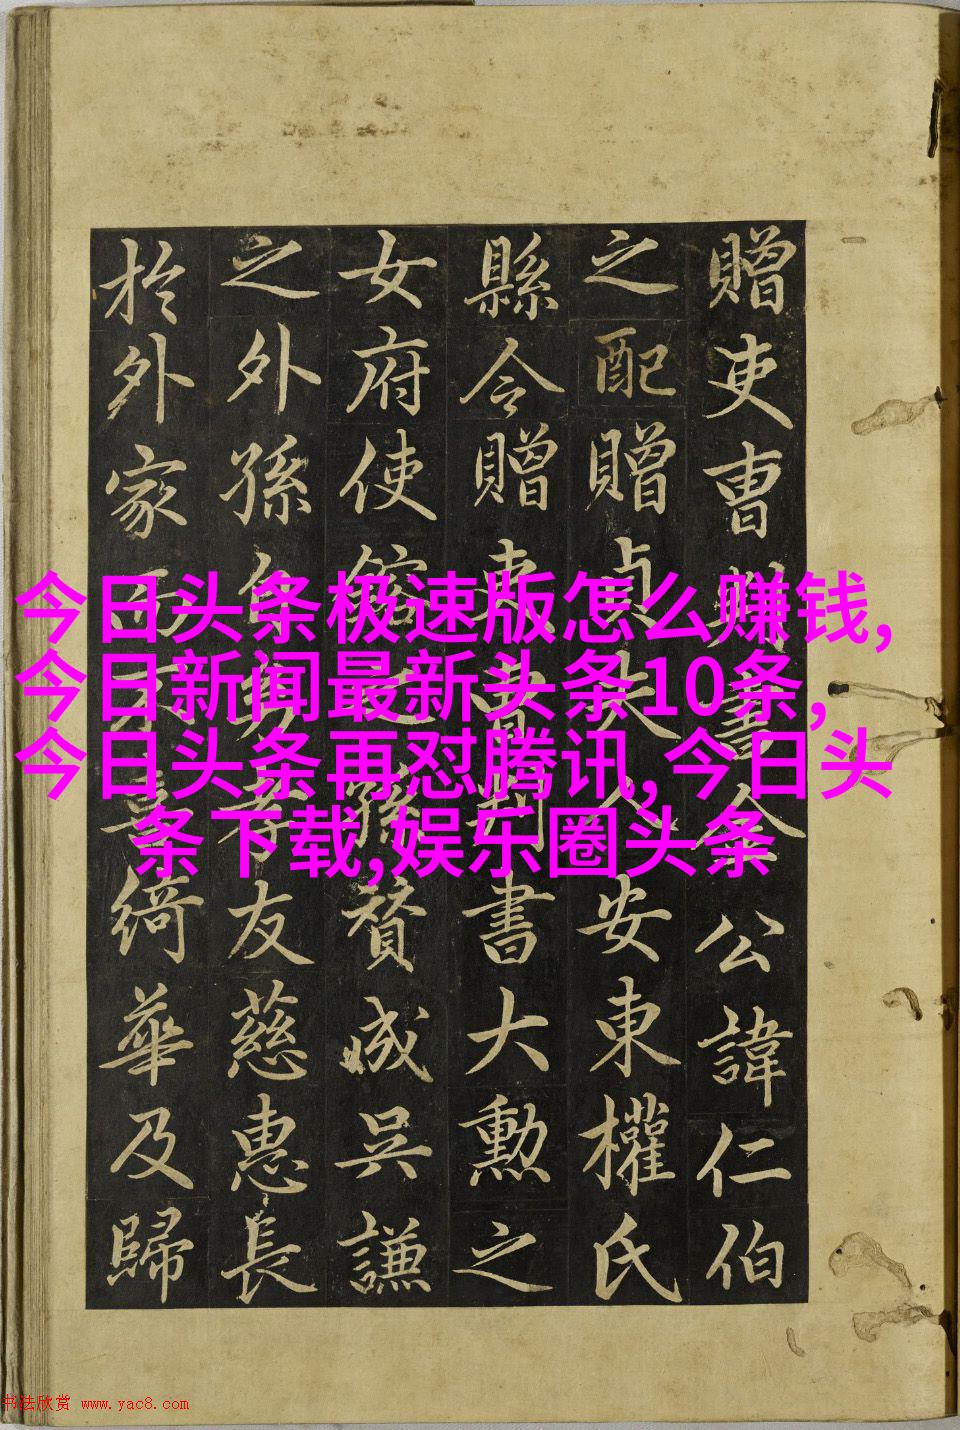 贈吏曹書金公諱仁伯
之配贈貞夫人安東權氏
縣令贈書大勳之
女府使孫贊成吳謙
之外孫孝友慈惠長
於外家不喜綺華及歸
今日头条极速版怎么赚钱,
今日新闻最新头条10条,
今日头条再怼腾讯,今日头
条下载,娱乐圈头条
书法欣赏 www.yac8.com